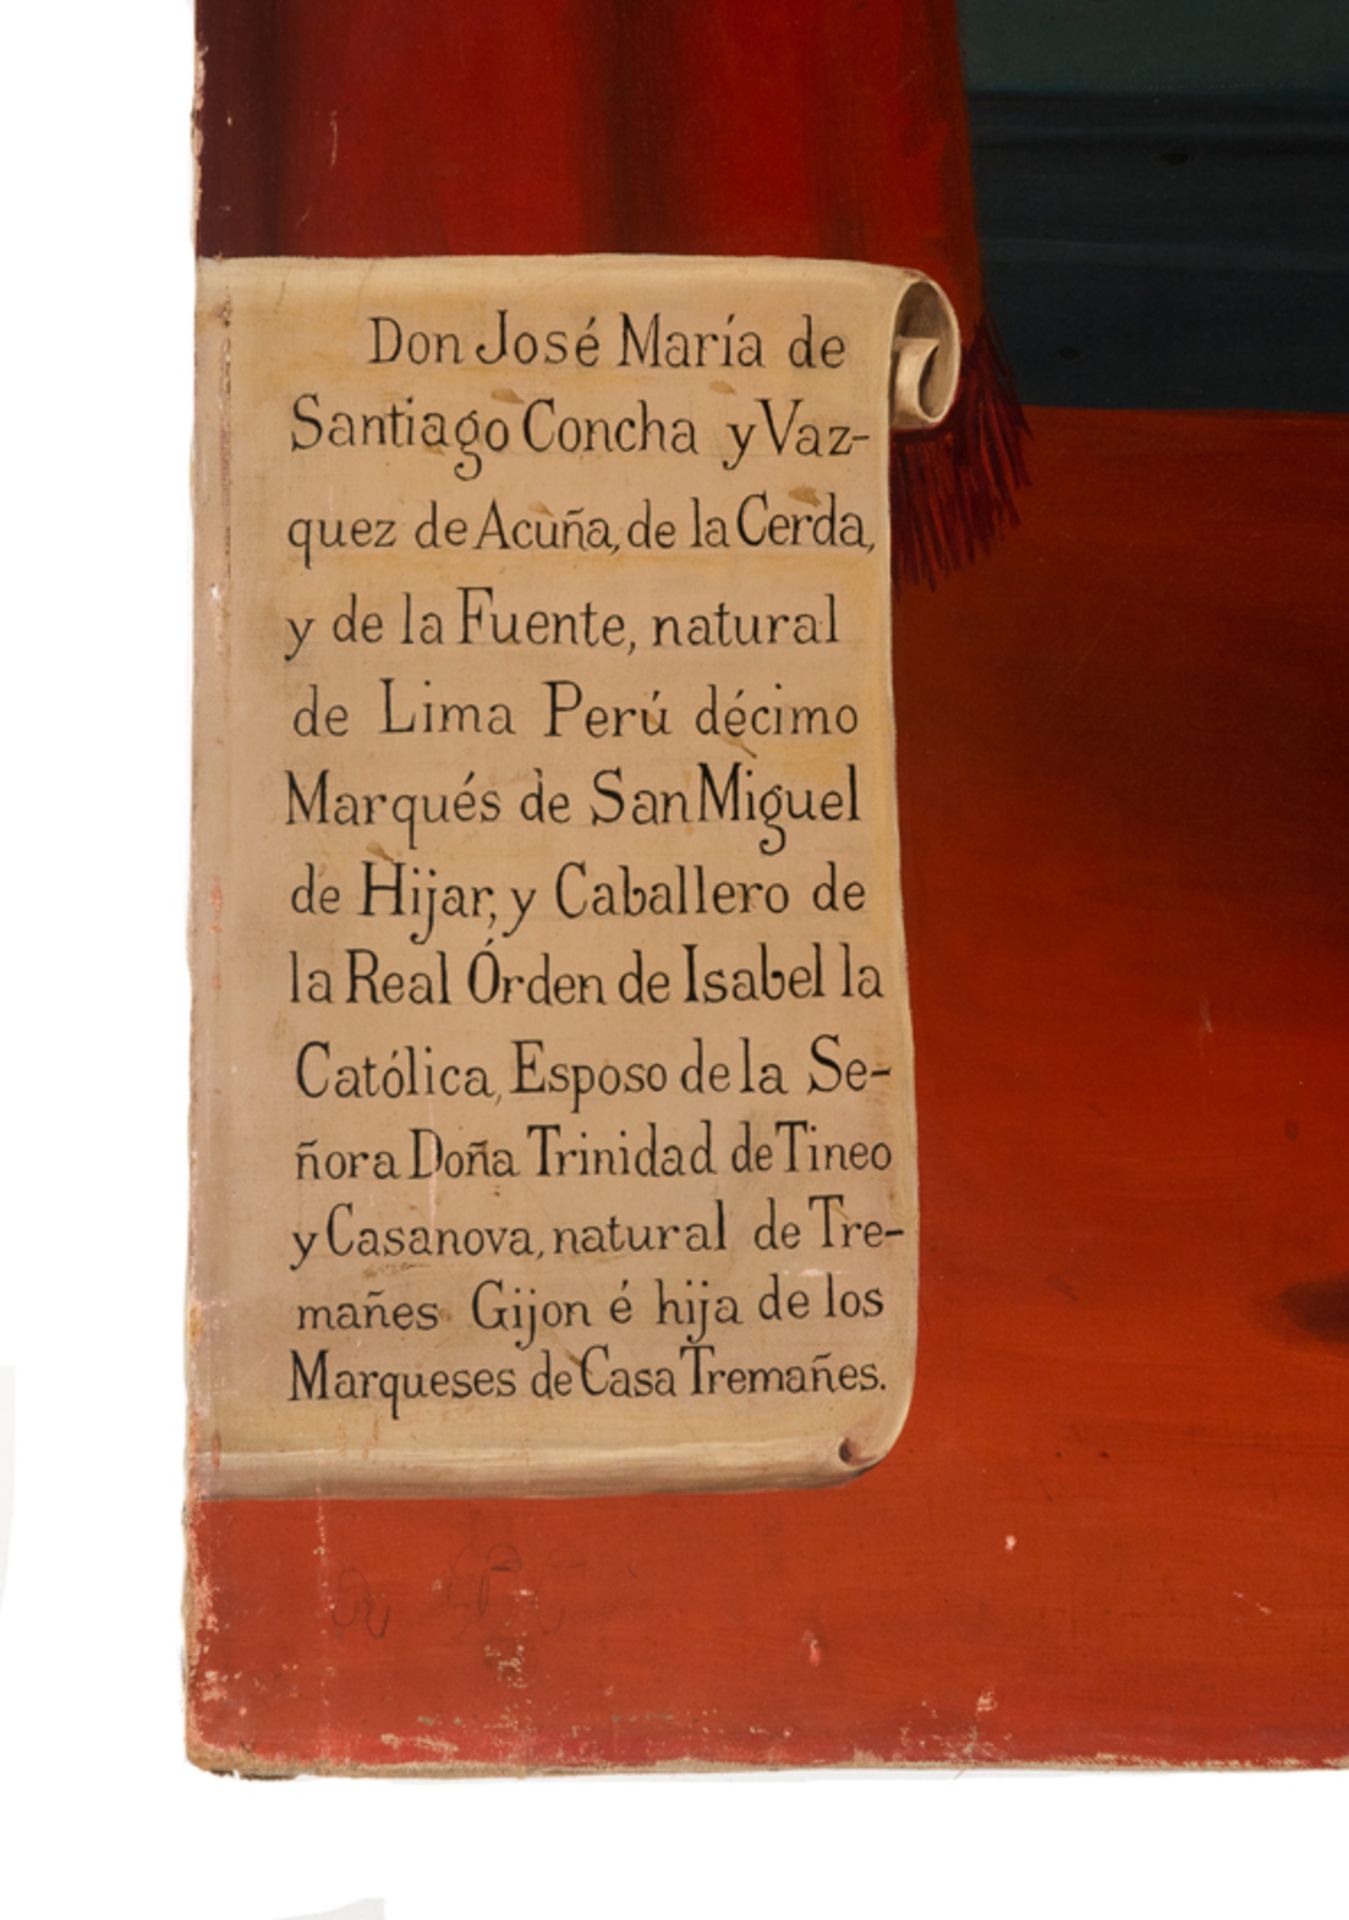 Don José María de
Santiago Concha y Vaz-
quez de Acuña, de la Cerda,
y de la Fuente, natural
de Lima Perú décimo
Marqués de San Miguel
de Hijar, y Caballero de
la Real Órden de Isabel la
Católica, Esposo de la Se-
ñora Doña Trinidad de Tineo
y Casanova, natural de Tre-
mañes Gijon é hija de los
Marqueses de Casa Tremañes.